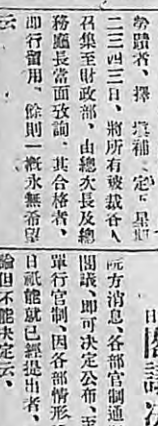 勞蹟者、擇□填補、定□星期
二三四三日、將所有被裁各人
召集至財政部、由總次長及總
務廳長當面致詢、其合格者、
即行留用、餘則一概永無希望
云
日
閣議
院方消息、各部官制通
閣議、即可決定公布、至
單行官制、因各部情形
日祇能就已經提出者、
論但不能決定云、